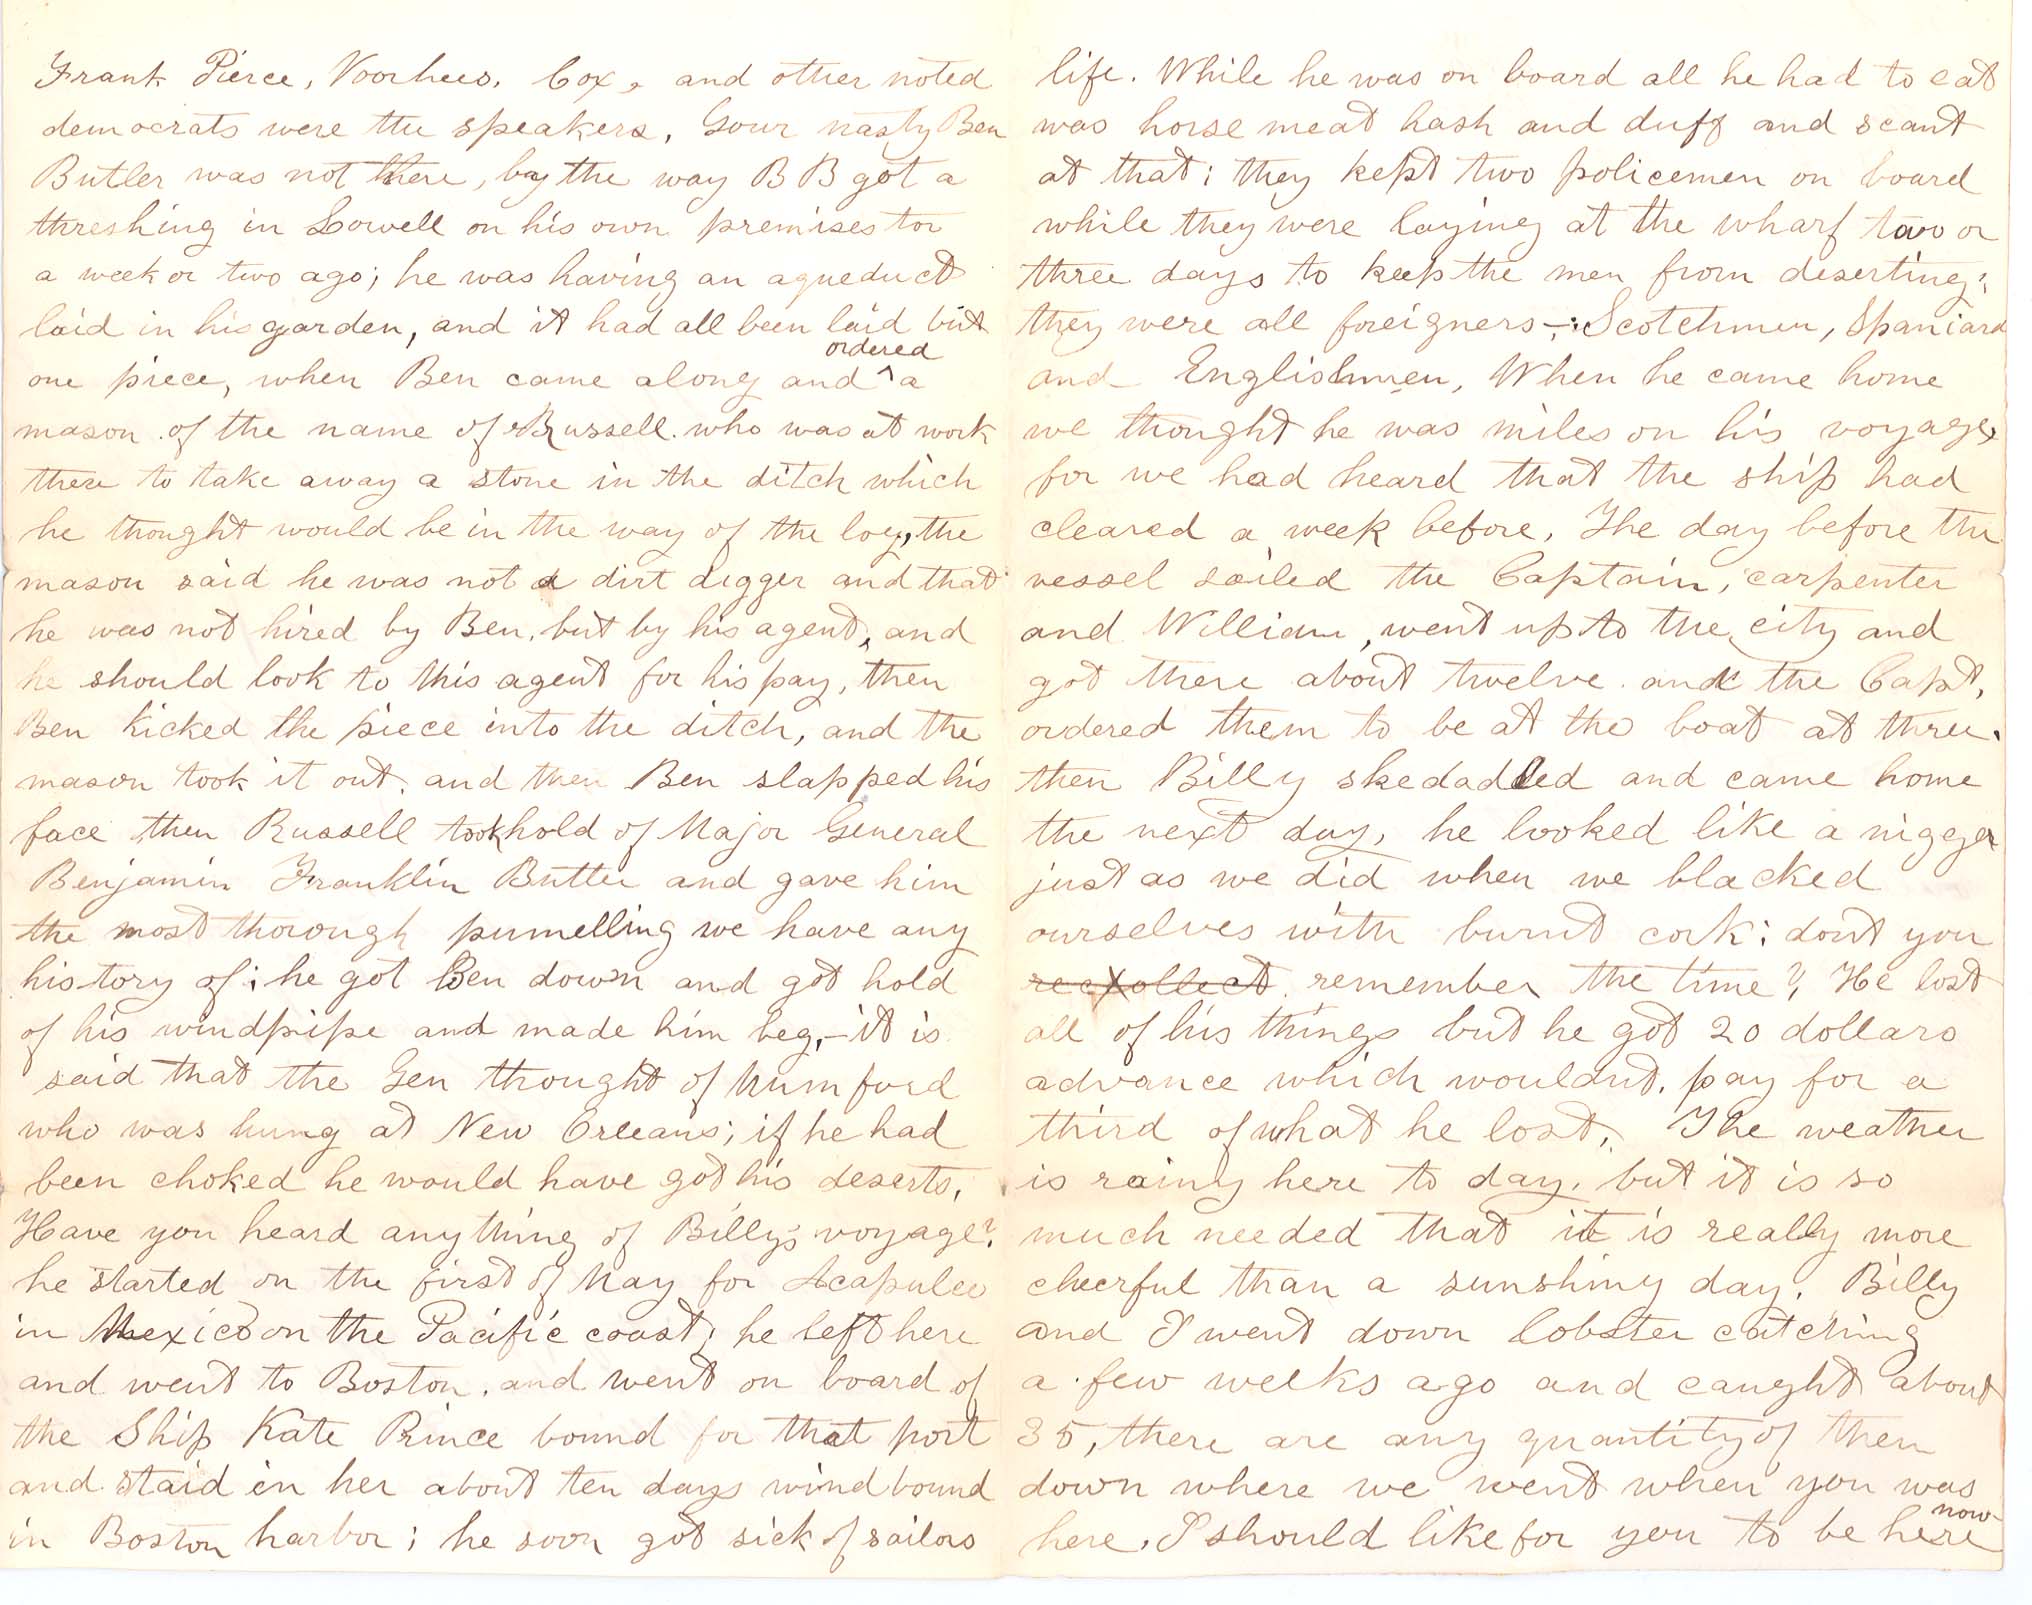 Frank Pierce, Voorhees, Cox, and other noted
democrats were the speakers, Your nasty Ben
Butler was not there, by the way B B got a
threshing in Lowell on his own premises
a week or two ago; he was having an aqueduct
laid in his garden, and it had all been laid but
one piece, when Ben came along and ^ordered a
mason of the name of Russell who was at work
there to take away a stone in the ditch which
he thought would be in the way of the log, the
mason said he was not a dirt digger and that
he was not hired by Ben, but by his agent, and
he should look to this agent for his pay, then
Ben kicked the piece into the ditch, and the
mason took it out, and then Ben slapped his
face, then Russell took hold of Major General
Benjamin Franklin Butler and gave him
the most thorough pumelling we have any
history of; he got Ben down and got hold
of his windpipe and made him beg,- it is
said that the Gen thought of Mumford
who was hung at New Orleans; if he had
been choked he would have got his deserts.
Have you heard anything of Billy's voyage?
he started on the first of May for Acapulco
in Mexico on the Pacific coast; he left here
and went to Boston, and went on board of
the Ship Kate Prince bound for that port
and staid in her about ten days wind bound
in Boston harbor; he soon got sick of sailors
life. While he was on board all he had to eat
was horse meat hash and duff and scant
at that; they kept two policemen on board
while they were laying at the wharf two or
three days to keep the men from deserting;
they were all foreigners-; Scotchmen, Spaniard
and Englishmen, When he came home
we thought he was miles on his voyage,
for we had heard that the ship had
cleared a week before. The day before the
vessel sailed the Captain, carpenter
and William, went up to the city and
got there about twelve and the Capt,
ordered them to be at the boat at three.
then Billy skedaddled and came home
the next day, he looked like a nigger
just as we did when we blacked
ourselves with burnt cork; dont you
recollect remember the time? He lost
all of his things but he got 20 dollars
advance which wouldnt. pay for a
third of what he lost. The weather
is rainy here to day, but it is so
much needed that it is really more
cheerful than a sunshiny day. Billy
and I went down lobster catching
a few weeks ago and caught about
35, there are any quantity of them
down where we went when you was
here. I should like for you to be here now